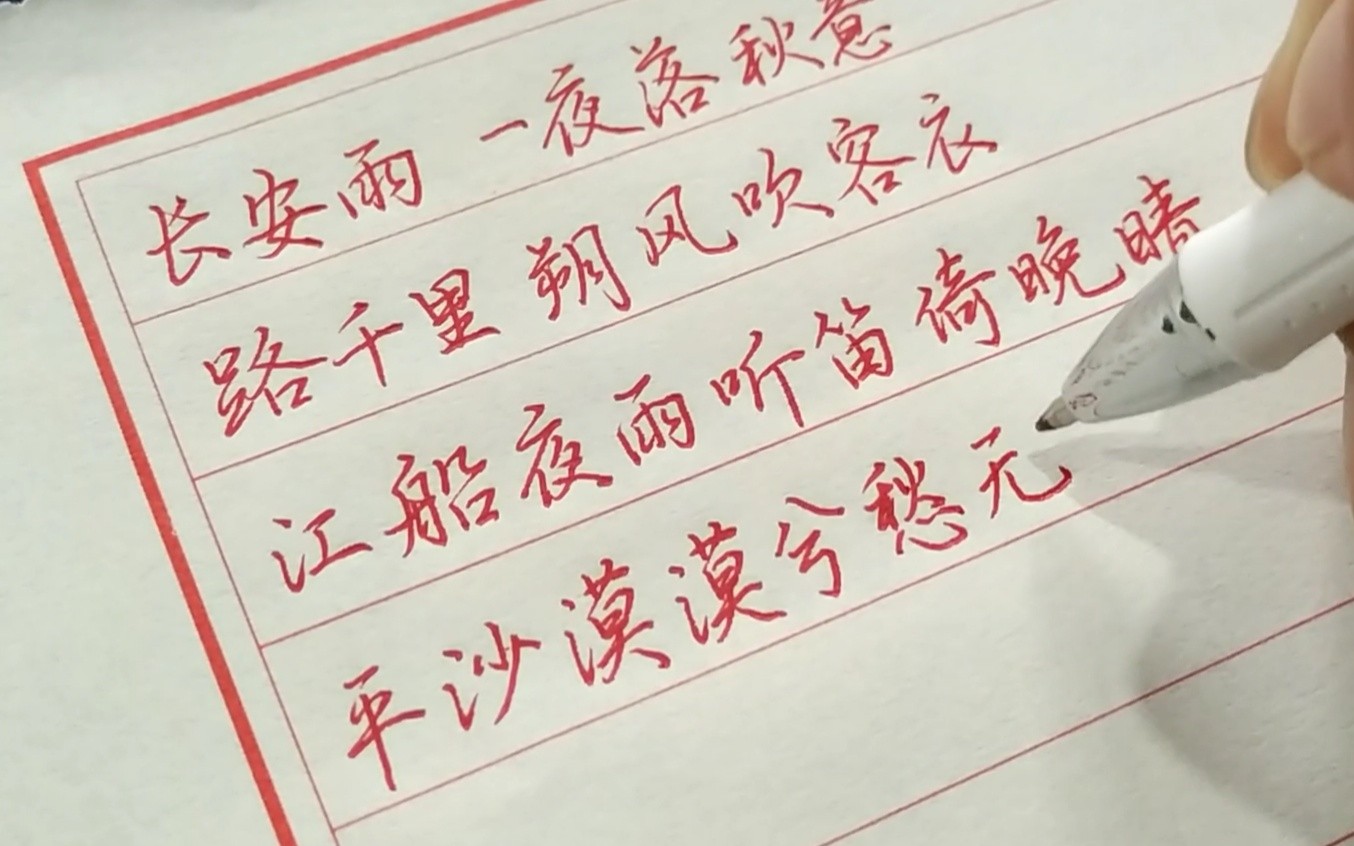 长安雨 一夜落秋意
路千里 朔风吹客衣
江船夜雨听笛倚晚晴
平沙漠漠兮愁无